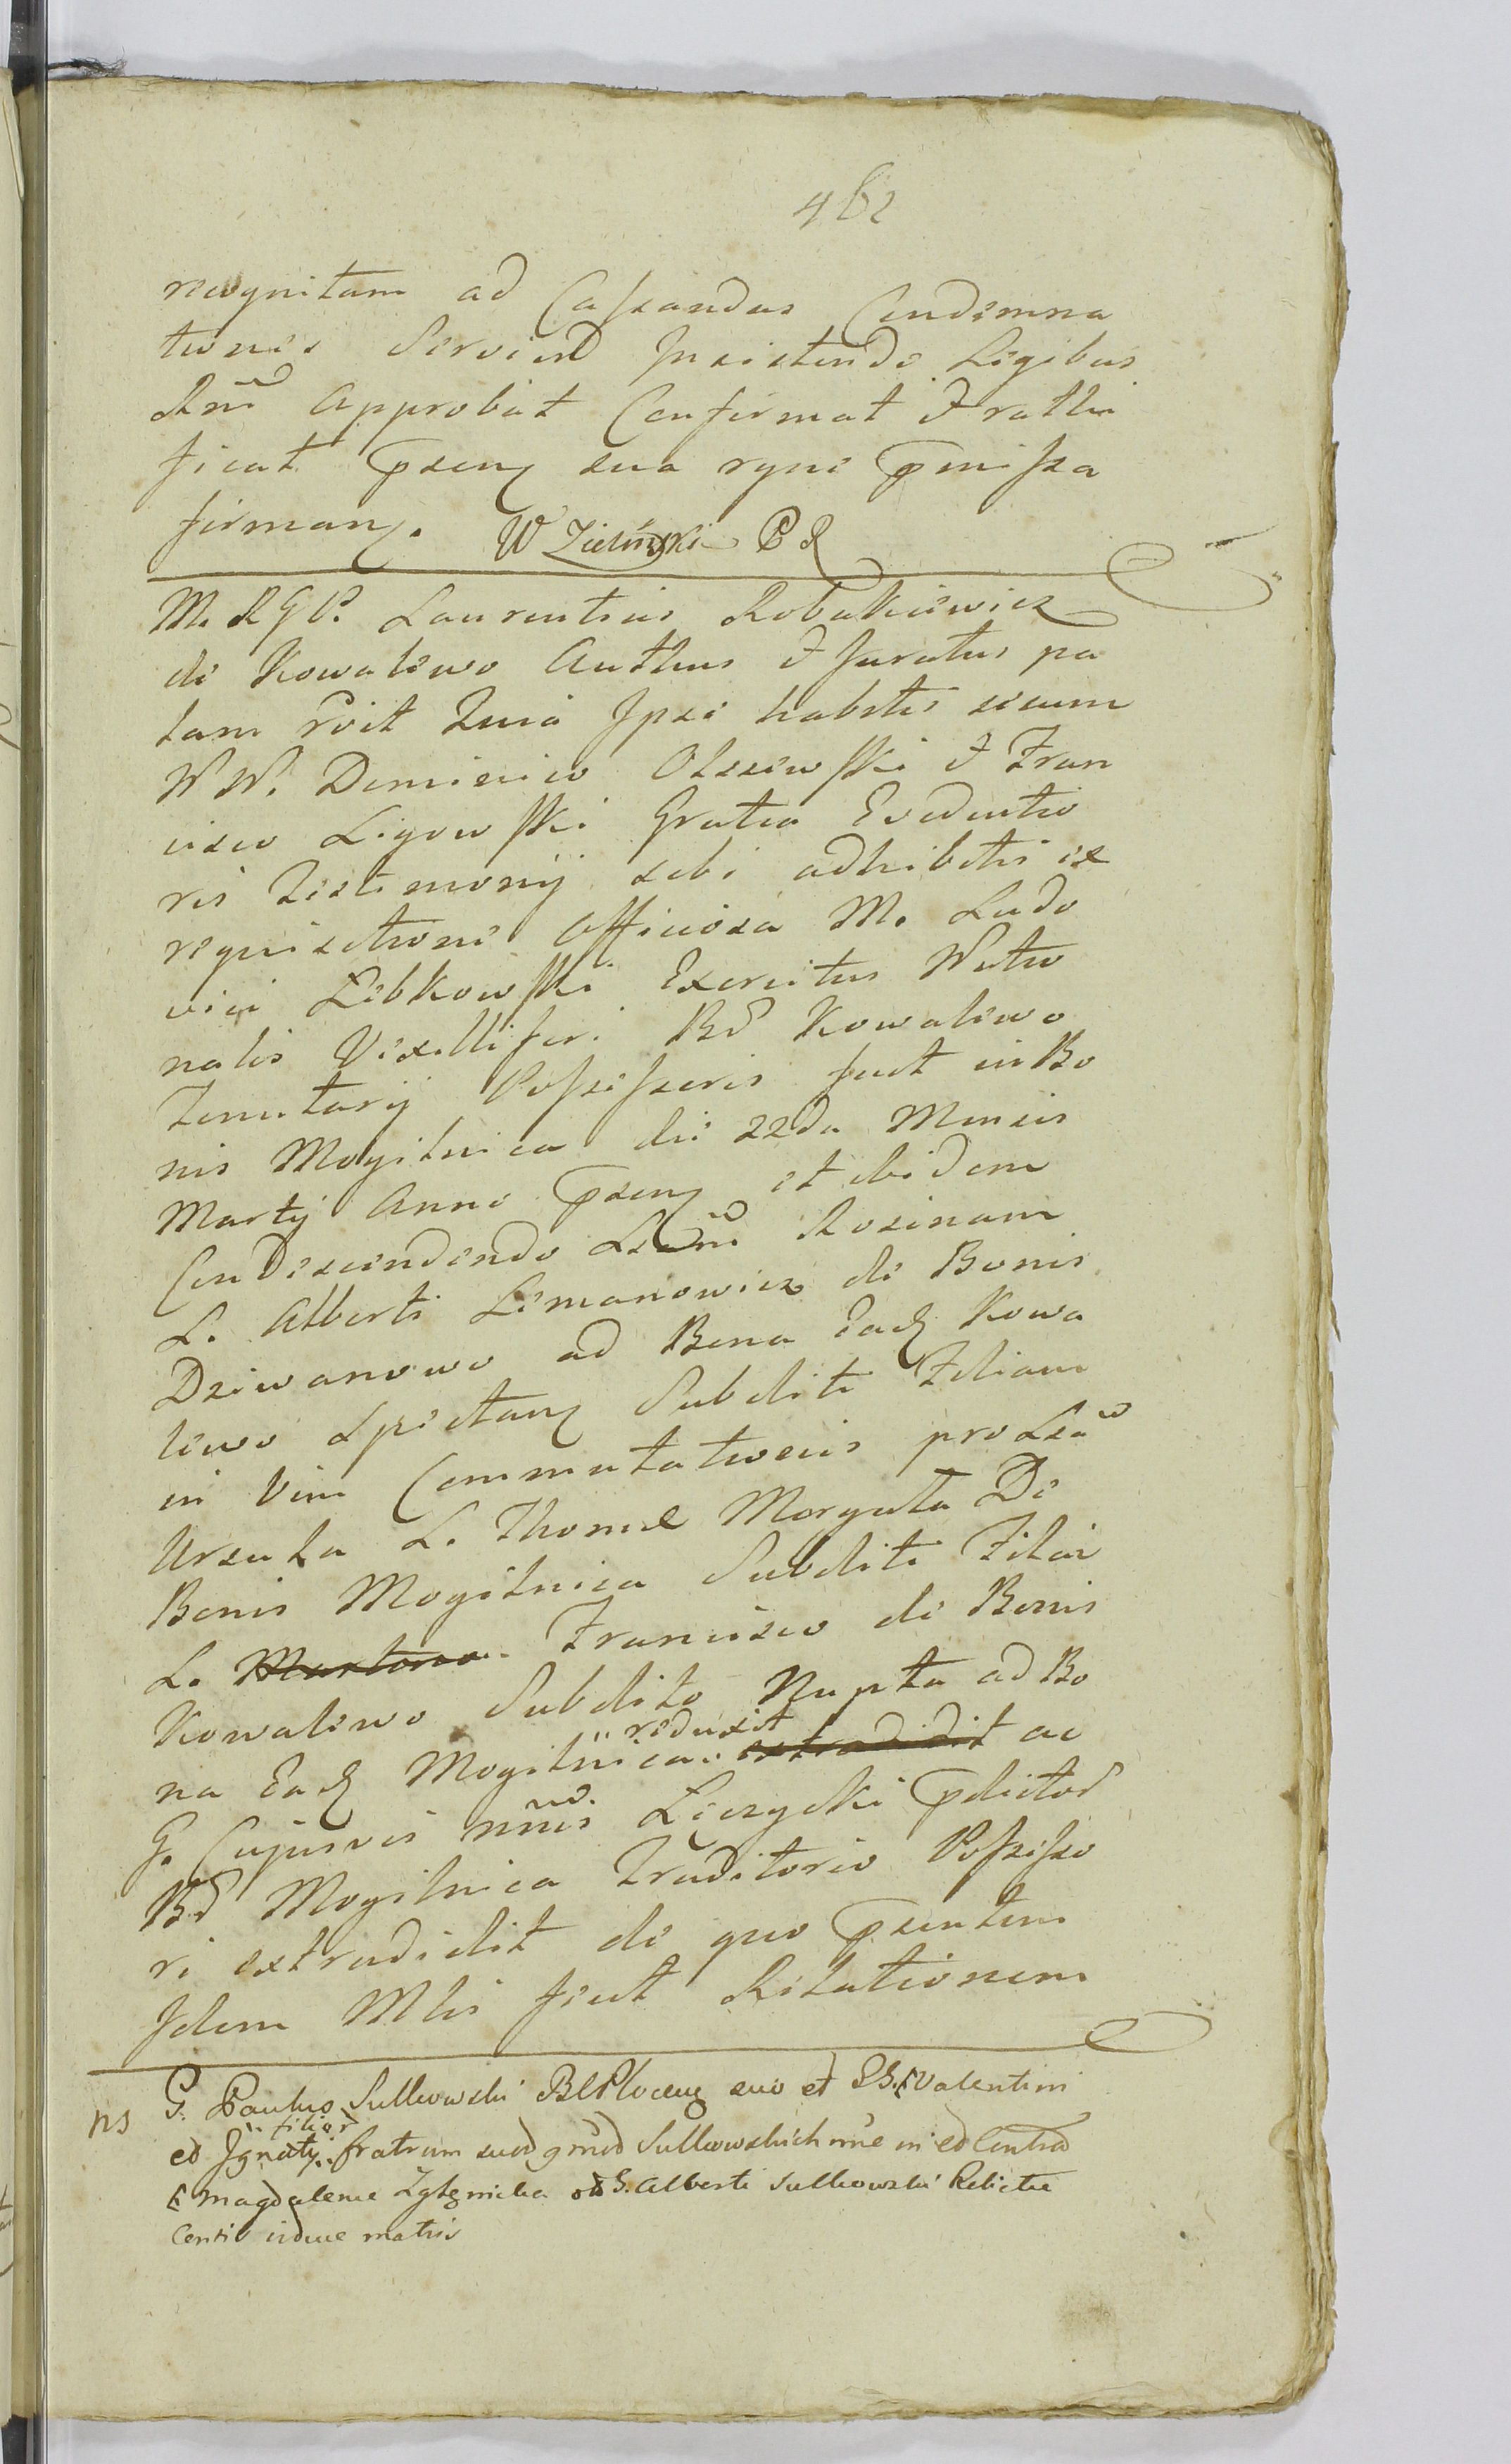 462
recognitam ad Cassandas Condemna
tiones Serviend Insistendo Legibus
Rñi Approbat Confirmat & ratti
ficat psenq sua rgne pmissa
firmanq. W Zielinski P R
M. R G P. Laurentius Robakiewicz
de Kowalewo Authus & Juratus pa
lam rvit Quia Ipse habitis secum
W W. Dominico Olszewski & Fran
cisco Ligowski Gratia Evidentio
ris Testimonÿ sibi adhibitis ex
requisitione Officiosa M. Ludo
vici Zebkowski Exercitus Natio
nalis Vexilliferi Bd Kowalewo
Tenutarÿ Possessoris fuit in Bo
nis Mogilnica die 22da Mensis
Martÿ Anno psenq et ibidem
Condescendendo Lsam Rosinam
L. Alberti Lemanowicz de Bonis
Dziwanowo ad Bona Eadq Kowa
lewo Spectanq Subditi Filiam
in Vim Commutationis pro Lsa
Ursula L. Thomæ Morgała De
Bonis Mogilnica Subditi Filia
L. Martino Francisco de Bonis
Kowalewo Subdito Nupta ad Bo
na Eadq Mogilnica reduxit extradidit ac
G. Cujusvis nñis Łęczycki pdictor
Bd Mogilnica Traditorio Possesso
ri extradidit de quo psentem
Idem Mlis fecit Relationem
ns G. Paulus Sulkowski BCPlocenq suo et GG. Valentini
et Ignatÿ filior fratrum suor gnrod Sulkowskich nñe in et Contra
G Magdalene Zglenicka ol G. Alberti Sulkowski Relictæ
Consis viduæ matris